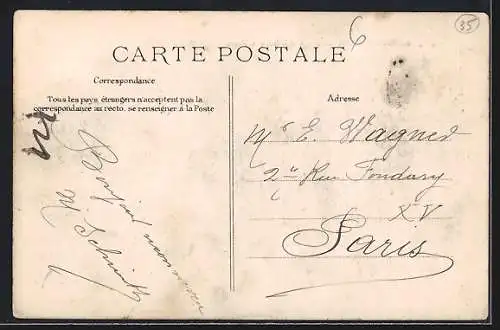 35
6
CARTE POSTALE
Correspondance
Tous les pays étrangers n'acceptent pas la
correspondance au recto. se renseigner à la Poste
Adresse
Mr E. Wagner
2 Rue Fondary
XV
Paris
M Schmidt